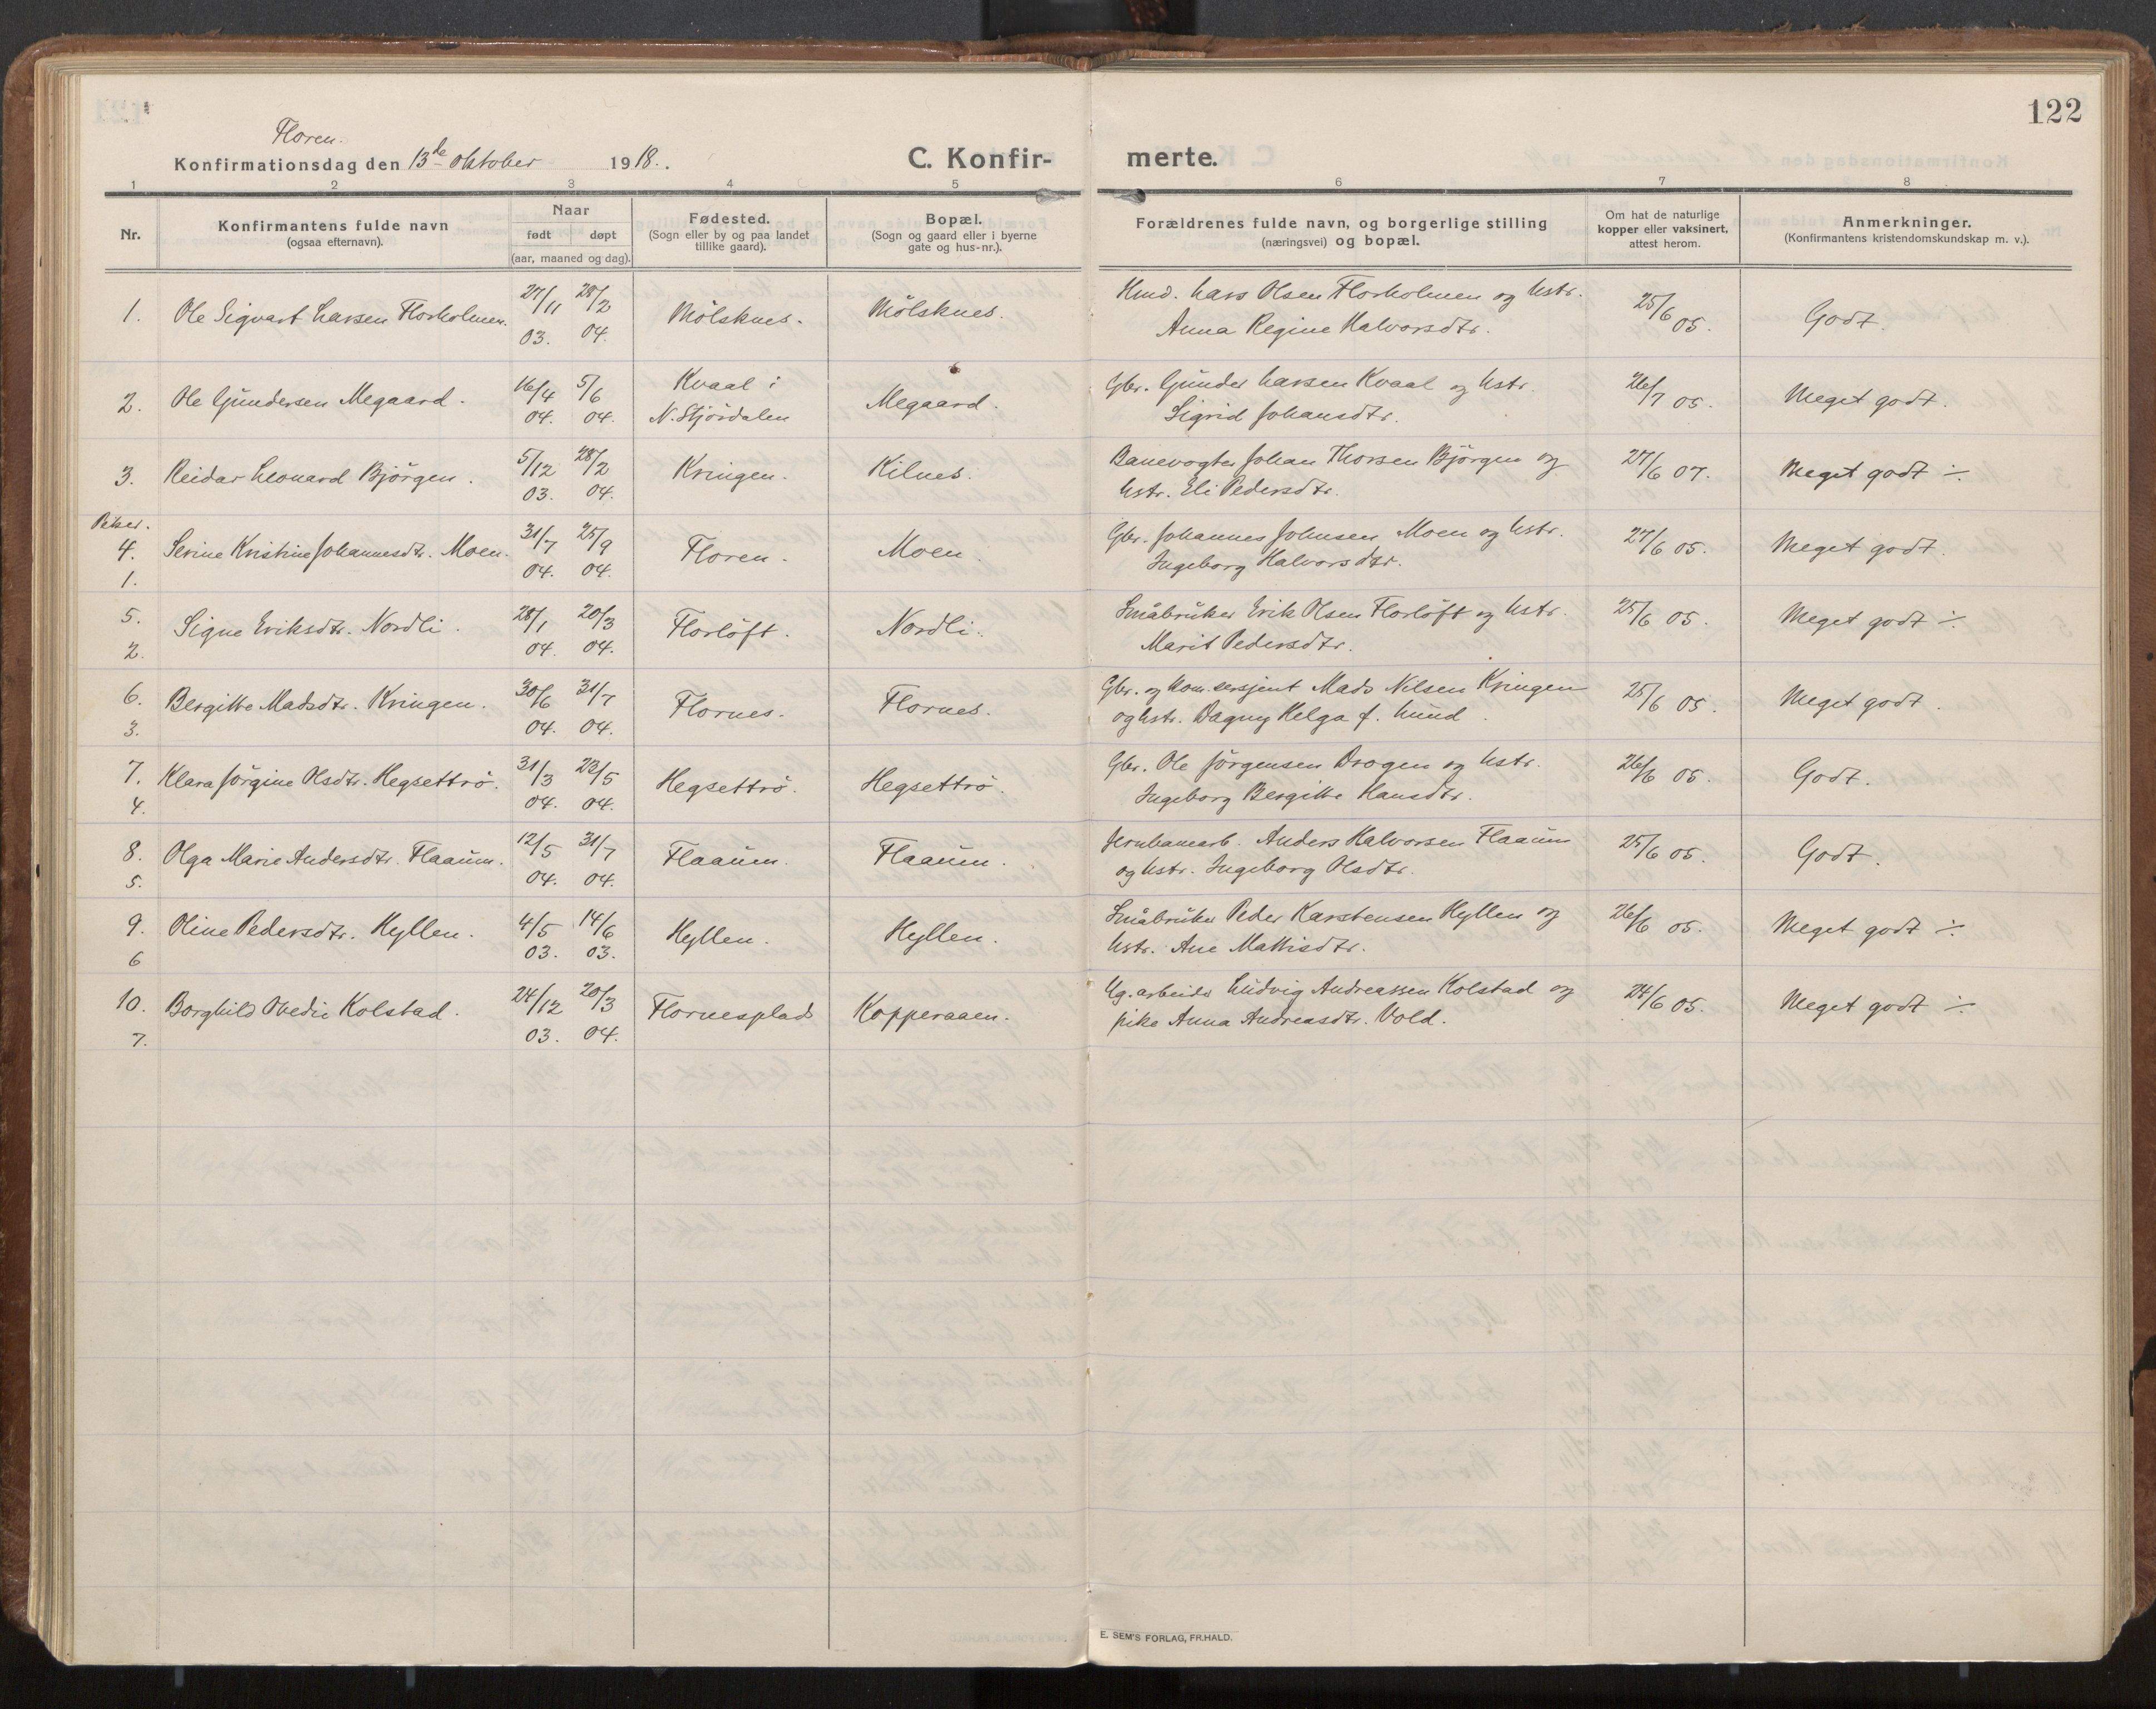 122
Floren.
Konfirmationsdag den 13de oktober 1918.
C. Konfir- merte.
1 2 3 4 5 6 7 8
Nr.
Konfirmantens fulde navn
(ogsaa efternavn).
Naar
født døpt
(aar, maaned og dag).
Fødested.
(Sogn eller by og paa landet
tillike gaard).
Bopæl.
(Sogn og gaard eller i byerne
gate og hus-nr.).
Forældrenes fulde navn, og borgerlige stilling
(næringsvei) og bopæl.
Om hat de naturlige
kopper eller vaksinert,
attest herom.
Anmerkninger.
(Konfirmantens kristendomskundskap m. v.).
1. Ole Sigvart Larsen Florholmen. 27/11 03. 28/2 04. Mölsknes. Mölsknes.
Hmd. Lars Olsen Florholmen og hstr.
Anna Regine Halvorsdtr.
25/6 05. Godt.
2. Ole Gundersen Megaard. 16/4 04. 5/6 04. Kvaal i
N. Stjördalen Megaard.
Gbr. Gunder Larsen Kvaal og hstr.
Sigrid Johansdtr.
26/7 05. Meget godt.
3. Reidar Leonard Björgen. 5/12 03. 28/2 04. Kringen. Kilnes.
Banevogter Johan Thorsen Björgen og
hstr. Eli Pedersdtr.
27/6 07. Meget godt ÷
Piker.
4. Serine Kristine Johannesdtr. Moen. 31/7 04. 25/9 04. Floren. Moen.
1.
Gbr. Johannes Johnsen Moen og hstr.
Ingeborg Halvorsdtr.
27/6 05. Meget godt.
5. Signe Eriksdtr. Nordli. 28/1 04. 20/3 04. Florlöft. Nordli.
2.
Småbruker Erik Olsen Florlöft og hstr.
Marit Pedersdtr.
25/6 05. Meget godt ÷
6. Bergitte Madsdtr. Kringen. 30/6 04. 31/7 04. Flornes. Flornes.
3.
Gbr. og kom.sersjent Mads Nilsen Kringen
og hstr. Dagny Helga f. Lund.
25/6 05. Meget godt.
7. Klara Jörgine Olsdtr. Hegsettrö. 31/3 04. 23/5 04. Hegsettrö. Hegsettrö.
4.
Gbr. Ole Jörgensen Drogen og hstr.
Ingeborg Bergitte Hansdtr.
26/6 05. Godt.
8. Olga Marie Andersdtr. Flaaum. 12/5 04. 31/7 04. Flaaum. Flaaum.
5.
Jernbanearb. Anders Halvorsen Flaaum
og hstr. Ingeborg Olsdtr.
25/6 05. Godt.
9. Oline Pedersdtr. Hyllen. 4/5 03. 14/6 03. Hyllen. Hyllen.
6
Småbruker Peder Karstensen Hyllen og
hstr. Ane Mattisdtr.
26/6 05. Meget godt ÷
10. Borghild Ovedie Kolstad. 24/12 03. 20/3 04. Flornesplads Kopperaaen.
7.
Ug. arbeider Ludvig Andreassen Kolstad og
pike Anna Andreasdtr. Vold.
24/6 05. Meget godt ÷
E. SEM'S FORLAG, FR.HALD.